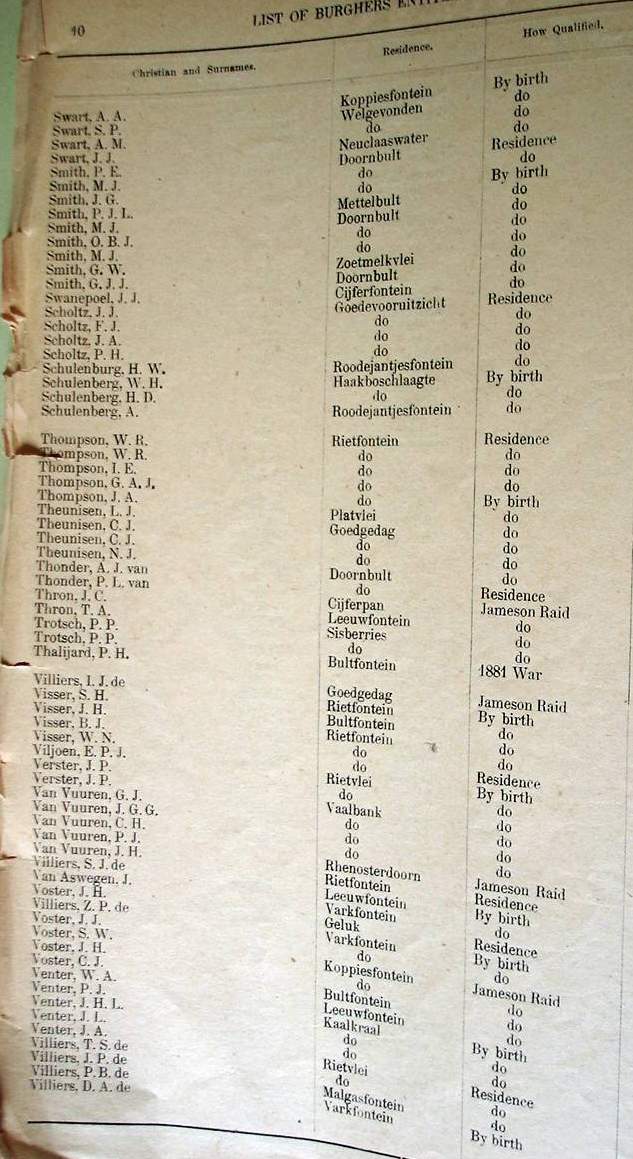 10 LIST OF BURGHERS
Christian and Surnames. Residence. How Qualified.
Swart, A. A. Koppiesfontein By birth
Swart, S. P. Welgevonden do
Swart, A. M. do do
Swart, J. J. Neuclaaswater do
Smith, P. E. Doornbult Residence
Smith, M. J. do do
Smith, J. G. do By birth
Smith, P. J. L. Mettelbult do
Smith, M. J. Doornbult do
Smith, O. B. J. do do
Smith, M. J. do do
Smith, G. W. Zoetmelkvlei do
Smith, G. J. J. Doornbult do
Swanepoel, J. J. Cijferfontein do
Scholtz, J. J. Goedevooruitzicht Residence
Scholtz, F. J. do do
Scholtz, J. A. do do
Scholtz, P. H. do do
Schulenburg, H. W. Roodejantjesfontein do
Schulenberg, W. H. Haakboschlaagte By birth
Schulenberg, H. D. do do
Schulenberg, A. Roodejantjesfontein do
Thompson, W. R. Rietfontein Residence
Thompson, W. R. do do
Thompson, I. E. do do
Thompson, G. A. J. do do
Thompson, J. A. do By birth
Theunisen, L. J. Platvlei do
Theunisen, C. J. Goedgedag do
Theunisen, C. J. do do
Theunisen, N. J. do do
Thonder, A. J. van Doornbult do
Thonder, P. L. van do Residence
Thron, J. C. Cijferpan Jameson Raid
Thron, T. A. Leeuwfontein do
Trotsch, P. P. Sisberries do
Trotsch, P. P. do do
Thalijard, P. H. Bultfontein 1881 War
Villiers, I. J. de Goedgedag Jameson Raid
Visser, S. H. Rietfontein By birth
Visser, J. H. Bultfontein do
Visser, B. J. Rietfontein do
Visser, W. N. do do
Viljoen, E. P. J. do Residence
Verster, J. P. Rietvlei By birth
Verster, J. P. do do
Van Vuuren, G. J. Vaalbank do
Van Vuuren, J. G. G. do do
Van Vuuren, C. H. do do
Van Vuuren, P. J. do do
Van Vuuren, J. H. Rhenosterdoorn Jameson Raid
Villiers, S. J. de Rietfontein Residence
Van Aswegen, J. Leeuwfontein By birth
Voster, J. H. Varkfontein do
Villiers, Z. P. de Geluk Residence
Voster, J. J. Varkfontein By birth
Voster, S. W. do do
Voster, J. H. Koppiesfontein Jameson Raid
Voster, C. J. do do
Venter, W. A. Bultfontein do
Venter, P. J. Leeuwfontein do
Venter, J. H. L. Kaalkraal By birth
Venter, J. L. do do
Venter, J. A. do do
Villiers, T. S. de Rietvlei Residence
Villiers, J. P. de do do
Villiers, P. B. de Malgasfontein do
Villiers, D. A. de Varkfontein By birth